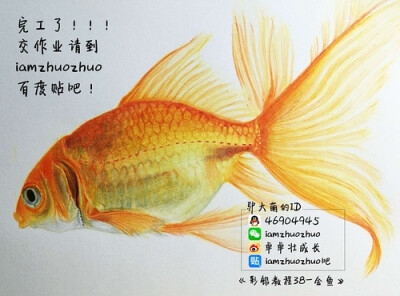 完工了！！！
交作业请到
iamzhuozhuo
百度贴吧！
驴大萌的ID
46904945
iamzhuozhuo
卓卓壮成长
贴 iamzhuozhuo吧
《彩铅教程38-金鱼》